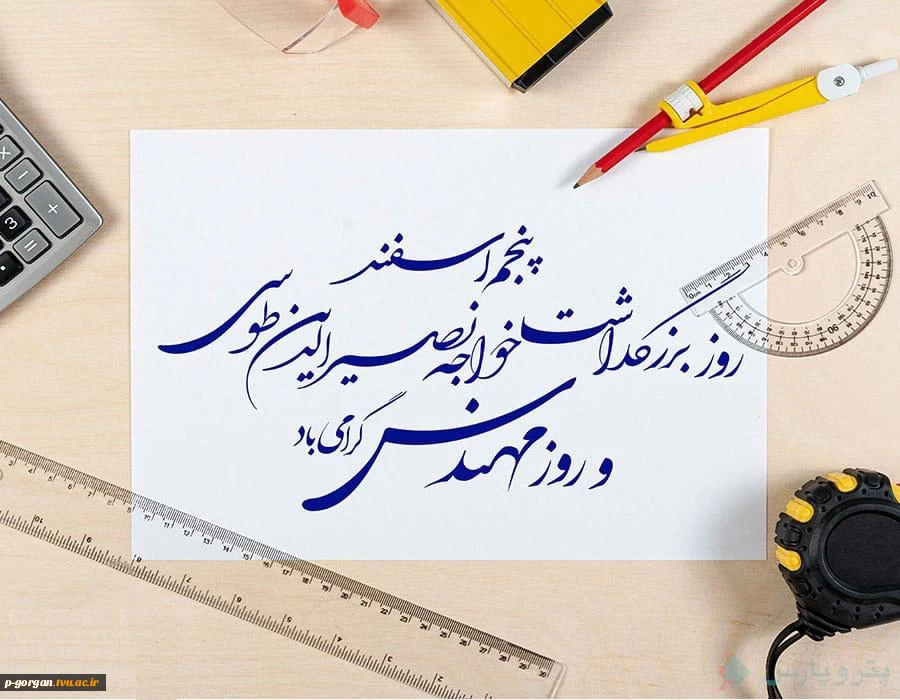 پنجم اسفند
روز بزرگداشت خواجه نصیرالدین طوسی
و روز مهندس گرامی باد
پترو پارس
p-gorgan.tvu.ac.ir